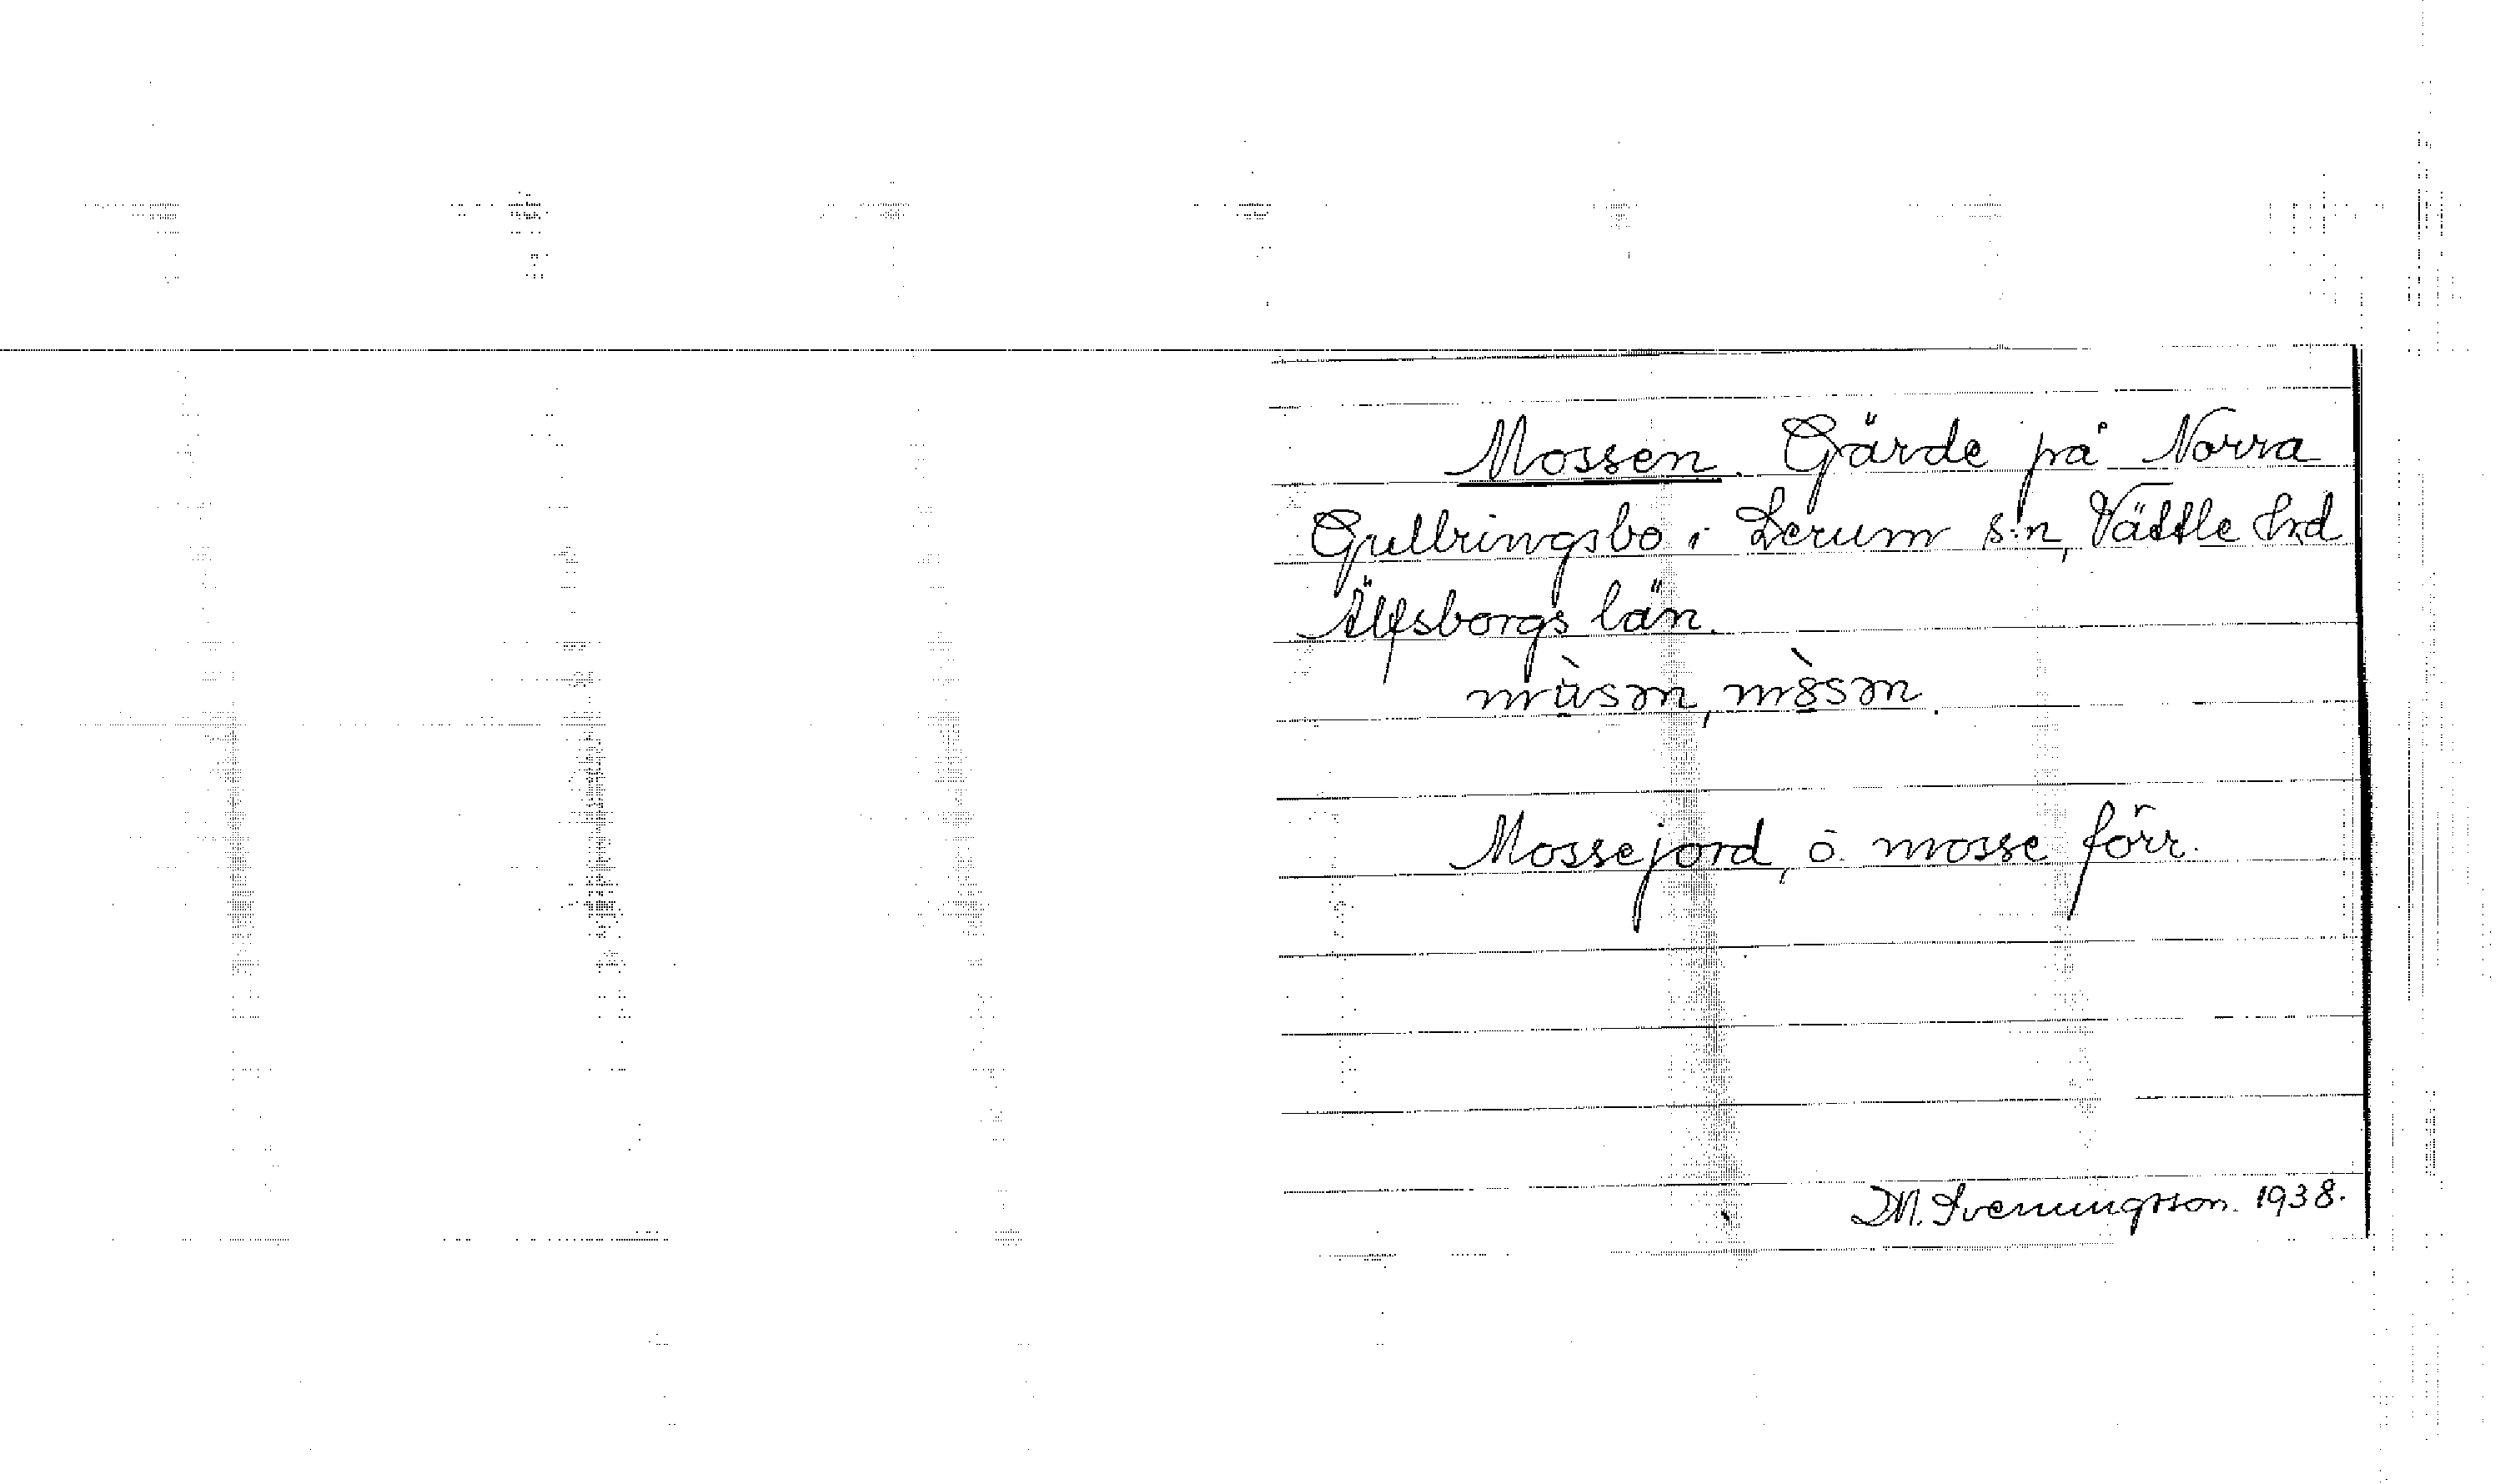 Mossen. Gärde på Norra
Gullringsbo i Lerum s:n, Vättle hd
Älfsborgs län.
mùsən, m8̀sən.
Mossejord, ö. mosse förr.
M. Svenungsson. 1938.